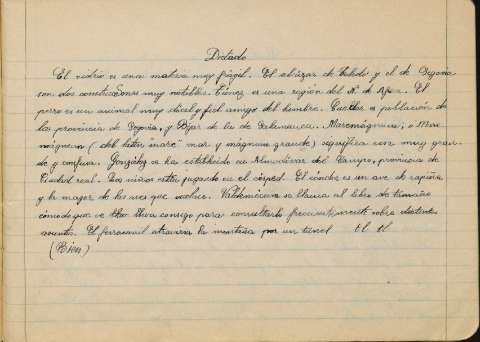 Dictado
El vidrio es una materia muy frágil. El alcázar de Toledo y el de Segovia
son dos construcciones muy notables. Túnez es una región del N. de Africa. El
perro es un animal muy dócil y fiel amigo del hombre. Cuéllar es población de
la provincia de Segovia, y Béjar de la de Salamanca. Maremágnum, o Mare
mágnum (del latín mare mar y mágnum grande) significa cosa muy gran-
de y confusa. González se ha establecido en Almodóvar del Campo, provincia de
Ciudad real. Los niños están jugando en el césped. El cóndor es un ave de rapiña
y la mayor de las aves que vuelan. Vademécum se llama al libro de tamaño
cómodo que se lleva consigo para consultarlo frecuentemente sobre distintos
asuntos. El ferrocarril atraviesa la montaña por un túnel El El
(Bien)